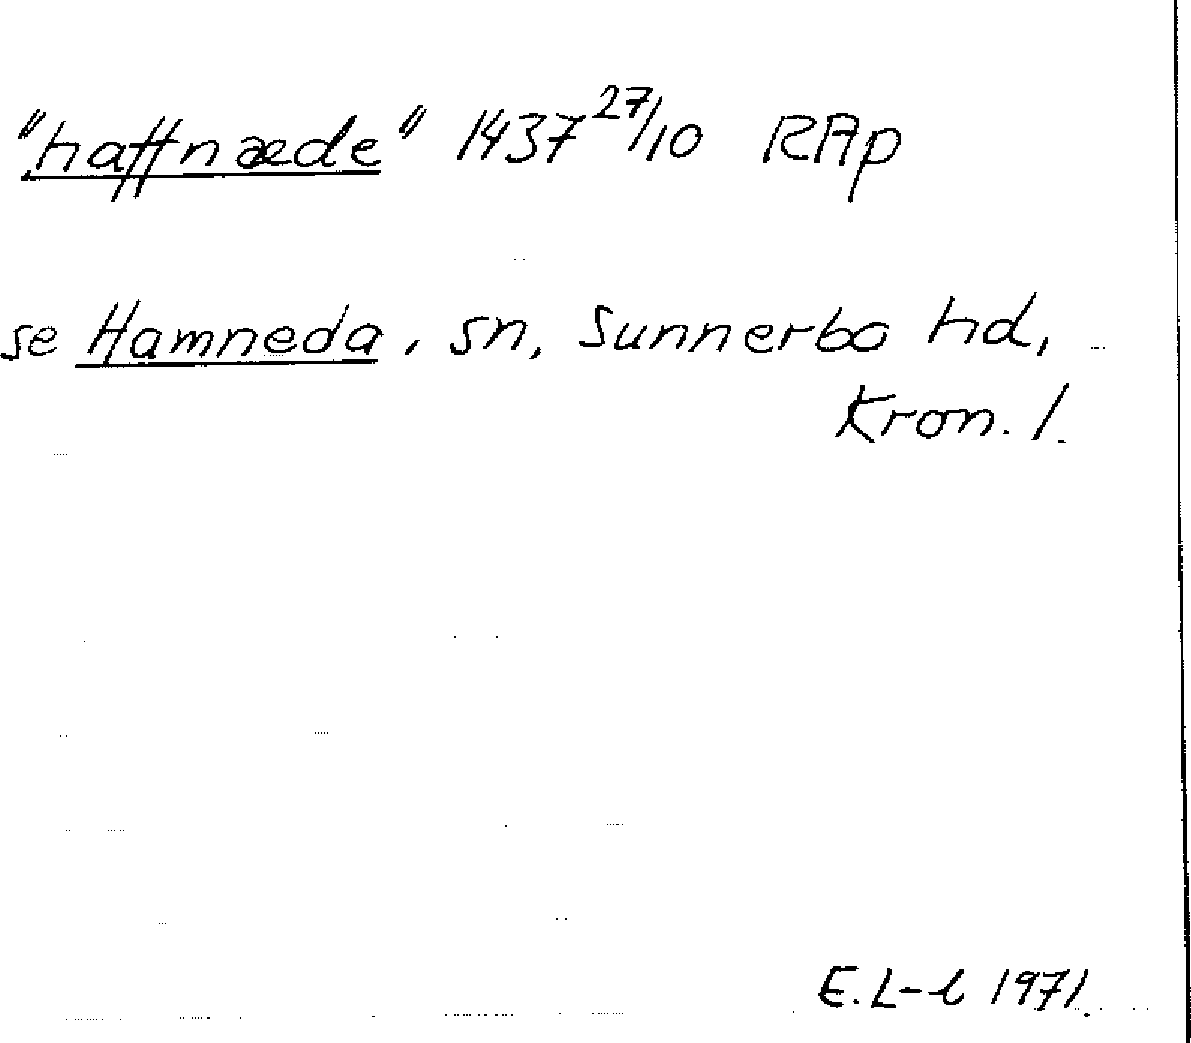 "haffnæde" 1437 27/10 RAp
se Hamneda, sn, Sunnerbo hd,
Kron. l.
E. L-l 1971.